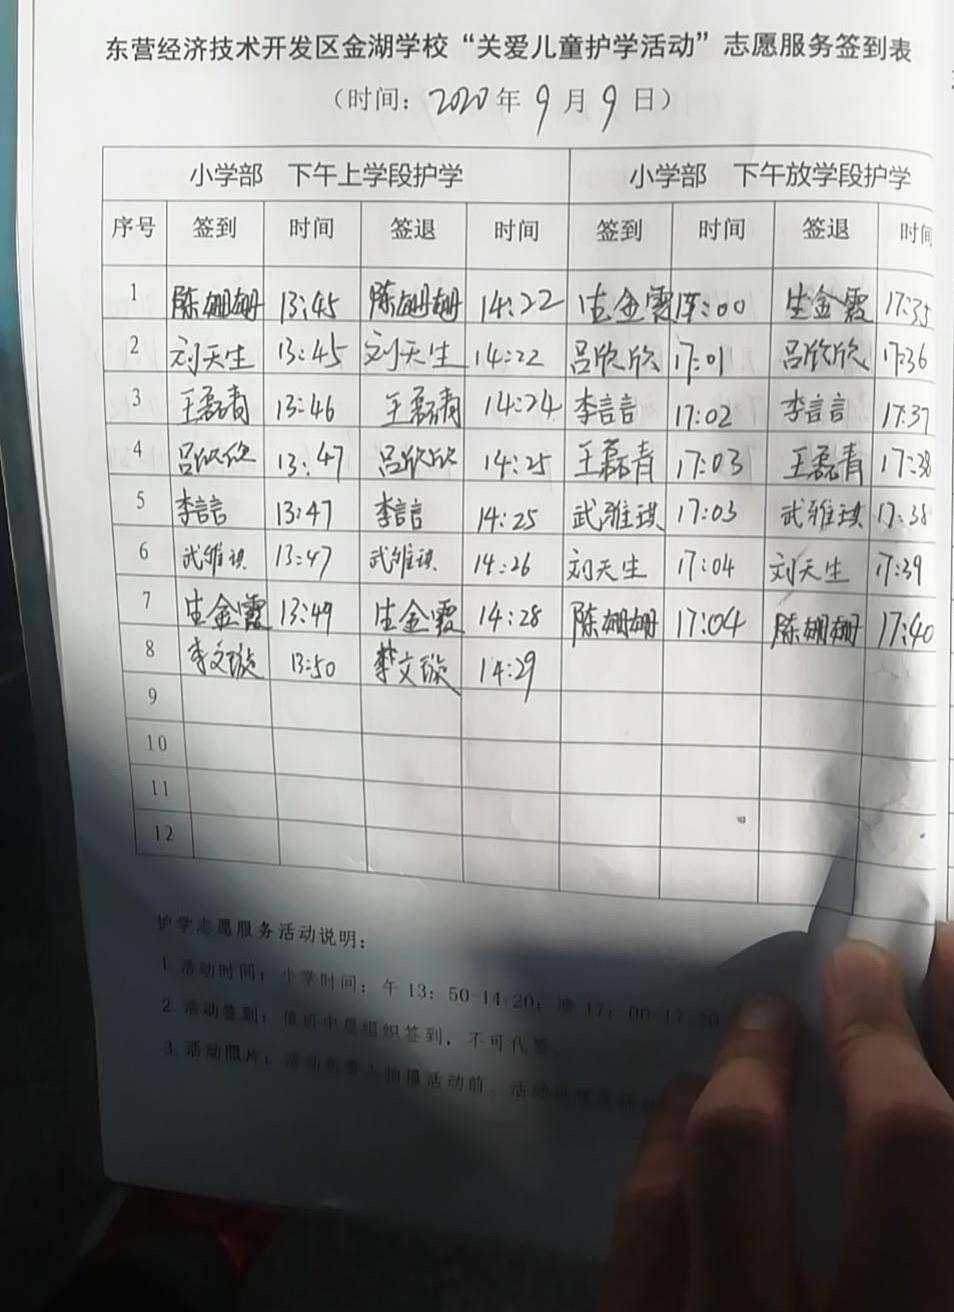 东营经济技术开发区金湖学校“关爱儿童护学活动”志愿服务签到表
（时间：2020年9月9日）
小学部 下午上学段护学 小学部 下午放学段护学
序号 签到 时间 签退 时间 签到 时间 签退 时间
1 陈姗姗 13:45 陈姗姗 14:22 生金霞 17:00 生金霞 17:35
2 刘天生 13:45 刘天生 14:22 吕欣欣 17:01 吕欣欣 17:36
3 王磊青 13:46 王磊青 14:24 李言言 17:02 李言言 17:37
4 吕欣欣 13:47 吕欣欣 14:25 王磊青 17:03 王磊青 17:38
5 李言言 13:47 李言言 14:25 武维琪 17:03 武维琪 17:38
6 武维琪 13:47 武维琪 14:26 刘天生 17:04 刘天生 17:39
7 生金霞 13:49 生金霞 14:28 陈姗姗 17:04 陈姗姗 17:40
8 李文璇 13:50 李文璇 14:29
9
10
11
12
护学志愿服务活动说明：
1 活动时间：小学时间：午13：50-14:20；晚17：00-17:30
2 活动签到：值班中层组织签到，不可代签。
3 活动照片：活动负责人拍摄活动前、活动